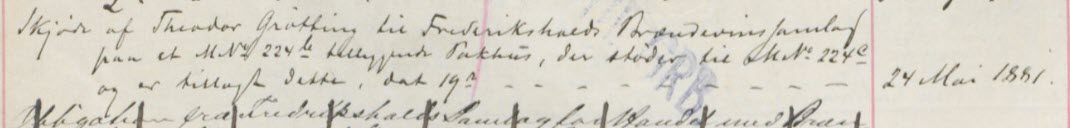 Skjøde af Theodor Grøtting til Frederikshalds Brændevinssamlag
paa et M.No 224b tilliggende Pakhus, der støder til M.No 224c
og er tillagt dette, dat 19de - - - - - - - - 24 Mai 1881.
Obligation fra Fredrikshalds Samlag for Handel med Bræn